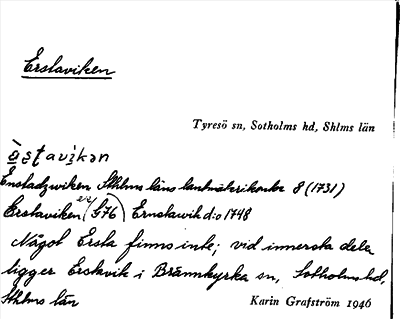 Erslaviken
Tyresö sn, Sotholms hd, Shlms län
Sthlms läns lantmäterikontor 8 (1731)
Erslaviken (G76) Ernstawik d:o 1748
Något Ersta finns inte; vid innersta delen
ligger Erstavik i Brännkyrka sn, Sotholms hd,
Sthlms län
Karin Grafström 1946